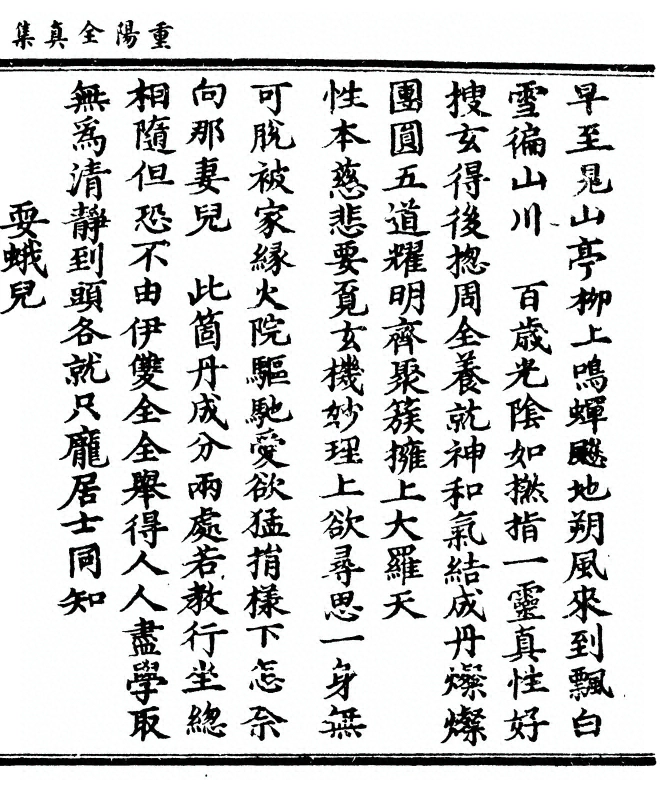 重陽全真集
早至晃山亭柳上鳴蟬颼地朔風來到飄白
雪徧山川　百歲光陰如撚指一靈真性好
搜玄得後揔周全養就神和氣結成丹燦燦
團圓五道耀明齊聚簇擁上大羅天
性本慈悲要覓玄機妙理上欲尋思一身無
可脫被家緣火院驅馳愛欲猛捎樣下怎奈
向那妻兒　此箇丹成分兩處若教行坐總
相隨但恐不由伊雙全全舉得人人盡學取
無為清靜到頭各就只龐居士同知
耍蛾兒